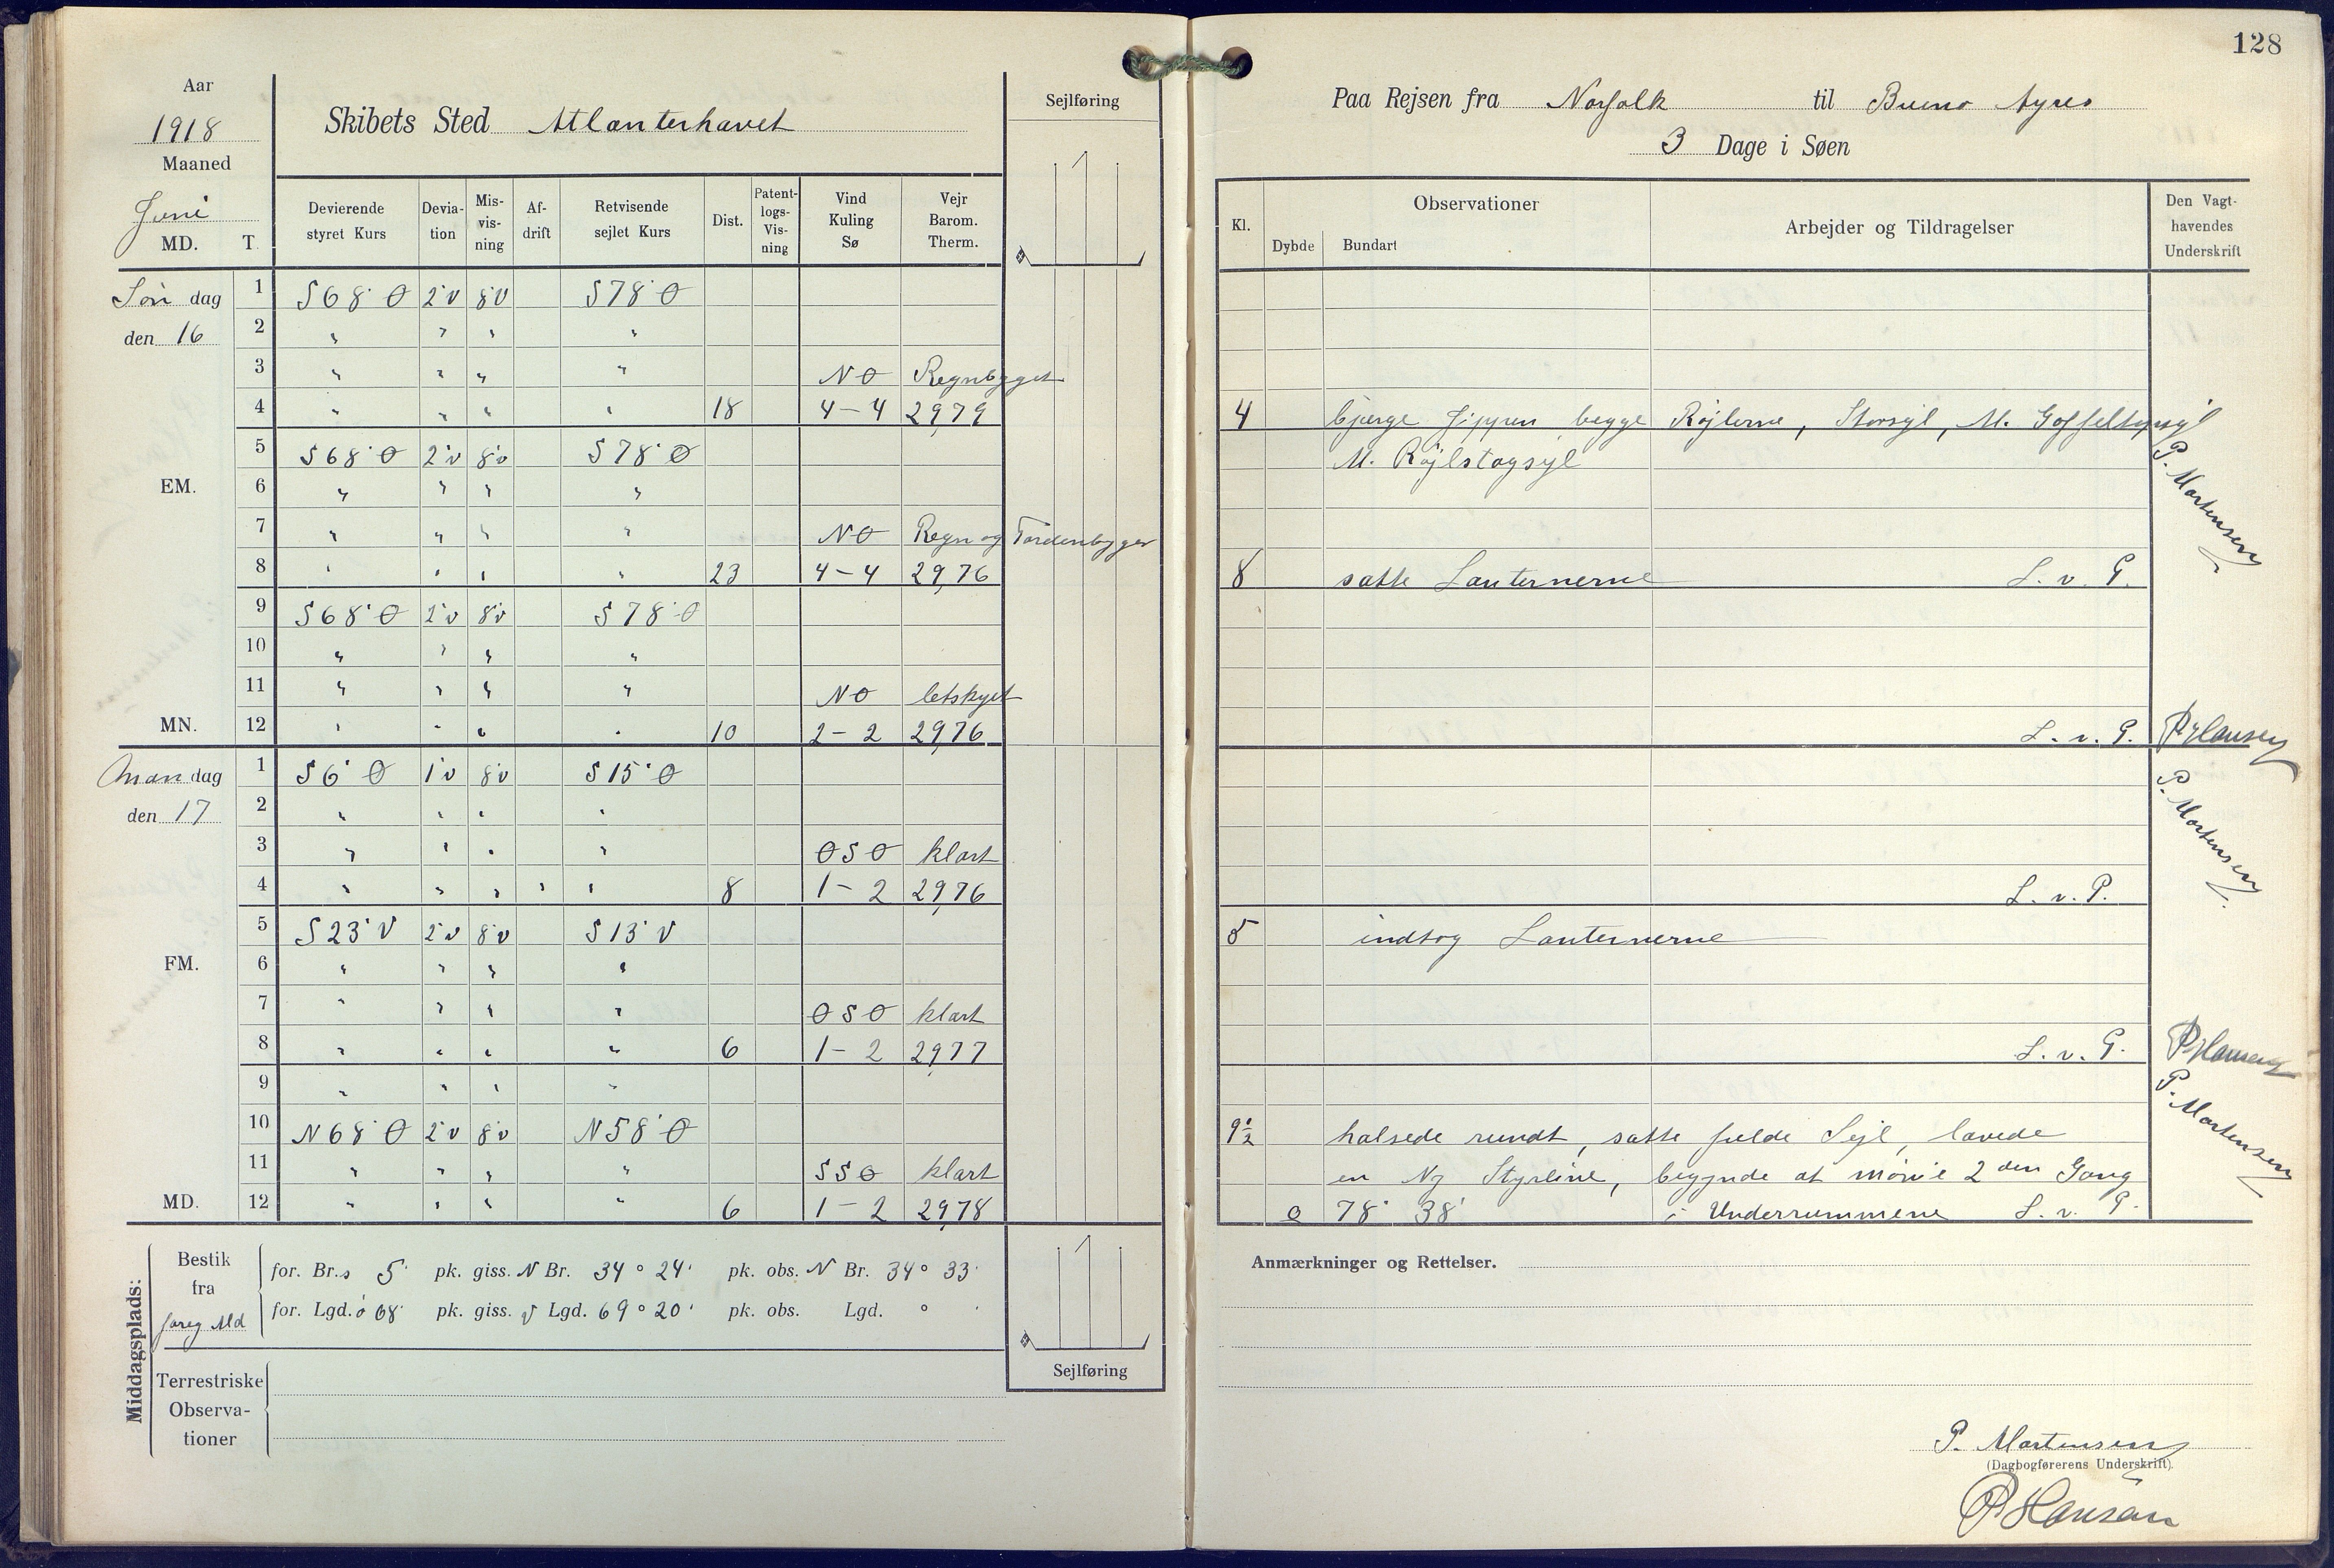 128
Aar
1918
Maaned
Juni
MD. T.
Skibets Sted Atlanterhavet
Sejlføring
Devierende styret Kurs
Devia-tion
Mis-vis-ning
Af-drift
Retvisende sejlet Kurs
Dist.
Patent-logs-Vis-ning
Vind Kuling Sø
Vejr Barom. Therm.
Søn dag 1 S 68° Ø 2°v 8°v S 78° Ø
den 16 2 " " " "
3 " " " " NO Regnbyget
4 " " " " 18 4-4 29,79
5 S 68° Ø 2°v 8°v S 78° Ø
EM. 6 " " " "
7 " " " " NO Regn og Tordenbyger
8 " " " " 23 4-4 29,76
9 S 68° Ø 2°v 8°v S 78° Ø
10 " " " "
11 " " " " NO letskyet
MN. 12 " " " " 10 2-2 29,76
Man dag 1 S 6° Ø 1°v 8°v S 15° Ø
den 17 2 " " " "
3 " " " " ØSØ klart
4 " " " " " 8 1-2 29,76
5 S 23° V 2°v 8°v S 13° V
FM. 6 " " " "
7 " " " " ØSØ klart
8 " " " " 6 1-2 29,77
9 " " " "
10 N 68° Ø 2°v 8°v N 58° Ø
11 " " " " SSØ klart
MD. 12 " " " " 6 1-2 29,78
Middagsplads:
Bestik fra foreg Md
for. Br. s 5' pk. giss. N Br. 34° 24' pk. obs. N Br. 34° 33'
for. Lgd. ø 68' pk. giss. V Lgd. 69° 20' pk. obs. Lgd. ° '
Terrestriske
Observa-
tioner
Sejlføring
Paa Rejsen fra Norfolk til Bueno Ayres
3 Dage i Søen
Kl.
Observationer
Dybde Bundart
Arbejder og Tildragelser
Den Vagt-havendes Underskrift
4 bjerge Jippen begge Røjlerne, Storsejl, M. Gaffeltopsejl
M. Røjlstagsejl
P. Mortensen
8 satte Lanternerne L. v. P.
L. v. P. P Hansen
P. Mortensen
L. v. P.
5 indtog Lanternerne
L. v. P. P Hansen
P. Mortensen
9½ halsede rundt, satte fulde Sejl, lavede
en Ny Styrline, begynde at mønie 2den Gang
o 78° 38' i Underrummene L. v. P.
Anmærkninger og Rettelser.
P. Mortensen
(Dagbogførerens Underskrift).
P Hansen